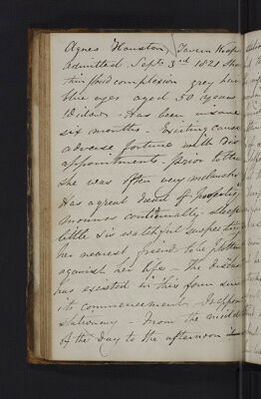 Agnes Houston, Tavern Keep
Admitted Septr 3rd 1821 she
thin florid complexion grey hair
blue eyes aged 50 years
Widow - Has been insane
six months - Exciting cause
adverse fortune with dis
appointments - prior to this
she was often very melancho
Has a great dread of
continually sleeps
little is watchful suspecting
her nearest friend to be plotting
against her life - The disease
has existed in this form since
its commencement -
stationary - From the middle
of the day to the afternoon